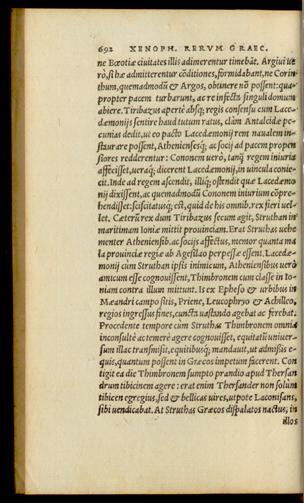 692 XENOPH. RERVM GRAEC.
ne Bœotiæ ciuitates illis adimerentur timebãt. Argiui ue
rò, si hæ admitterentur cõditiones, formidabant, ne Corin
thum, quemadmodũ & Argos, obtinere nõ possent: qua-
propter pacem turbarunt, ac re infecta singuli domum
abiere. Tiribazus aperte absq; regis consensu cum Lace-
dæmonijs sentire haud tutum ratus, clàm Antalcidæ pe-
cunias dedit, ut eo pacto Lacedæmonij rem naualem in-
staurare possent, Atheniensesq; ac socij ad pacem propen
siores redderentur: Cononem uerò, tanq̃ regem iniuria
affecisset, ueraq; dicerent Lacedæmonij, in uincula conie-
cit. Inde ad regem ascendit, illiq; ostendit quæ Lacedæmo
nij dixissent, ac quemadmodũ Cononem iniurium cõpre-
hendisset: sciscitatusq; est, quid de his omnib. rex fieri uel-
let. Cæterũ rex dum Tiribazus secum agit, Struthan in
maritimam Ioniæ mittit prouinciam. Erat Struthas uehe
menter Atheniensib. ac socijs affectus, memor quanta ma
la prouinciæ regiæ ab Agesilao perpessæ essent. Lacedæ-
monij cùm Struthan ipsis inimicum, Atheniensibus uerò
amicum esse cognouissent, Thimbronem cum classe in Io-
niam contra illum mittunt. Is ex Epheso & urbibus in
Mæandri campo sitis, Priene, Leucophryo & Achilleo,
regios ingressus fines, cuncta uastando agebat ac ferebat.
Procedente tempore cùm Struthas Thimbronem omnia
inconsultè ac temerè agere cognouisset, equitatũ uniuer-
sum illac transmisit, equitibusq; mandauit, ut admissis e-
quis, quantum possent in Græcos impetum facerent. Con
tigit ea die Thimbronem sumpto prandio apud Thersan
drum tibicinem agere: erat enim Thersander non solùm
tibicen egregius, sed & bellicas uires, utpote Laconissans,
sibi uendicabat. At Struthas Græcos dispalatos nactus, in
illos